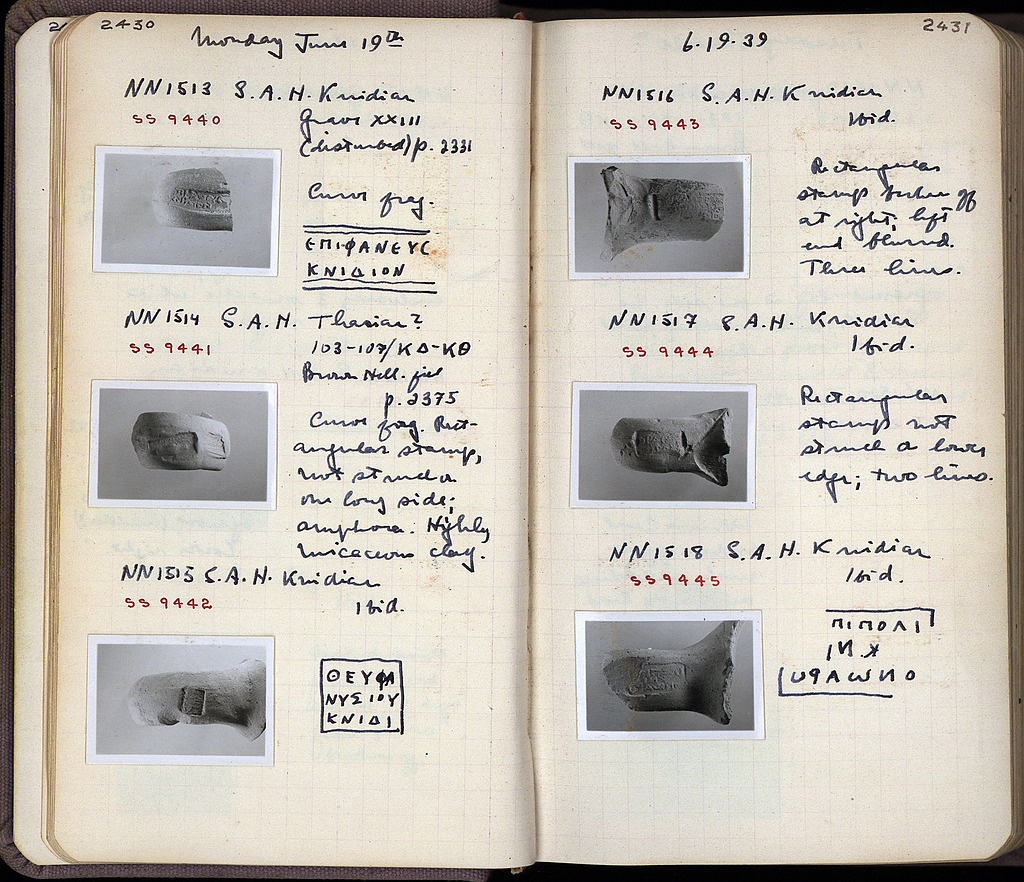 2430
Monday June 19th
NN1513 S.A.H. Knidian
SS 9440
Grave XXIII
(disturbed) p. 2331
Curve frag.
ΕΠΙΦΑΝΕΥC
ΚΝΙΔΙΟΝ
NN1514 S.A.H. Thasian?
SS 9441
103-107/ΚΔ-ΚΘ
Brown Hell. fill
p. 2375
Curve frag. Rect-
angular stamp,
not struck on
one long side;
amphora. Highly
micaceous clay.
NN1515 S.A.H. Knidian
SS 9442
Ibid.
ΘΕΥΦΑ
ΝΥΣΙΟΥ
ΚΝΙΔΙ
2431
6.19.39
NN1516 S.A.H. Knidian
SS 9443
Ibid.
Rectangular
stamp broken off
at right, left
end blurred.
Three lines.
NN1517 S.A.H. Knidian
SS 9444
Ibid.
Rectangular
stamp not
struck on lower
edge; two lines.
NN1518 S.A.H. Knidian
SS 9445
Ibid.